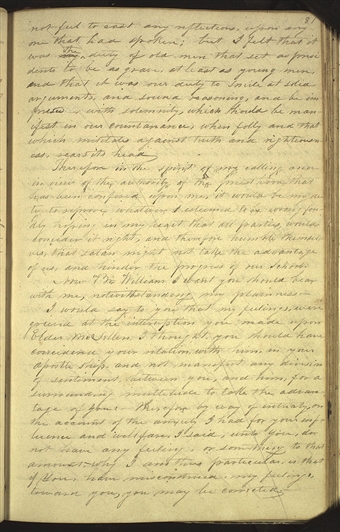 81
not feel to cast any reflections upon any
one that had spoken; but I felt that it
was the duty of old men that set as presi
dents to be as grave, at least as young men
and that it was our duty to smile at solid
arguments, and sound reasoning, and be im
pressed with solemnity which should be man
ifest in our countanance, when folly and that
which militates against truth and righteous
ess, rears its head
Therefore in the spirit of my calling and
in view of the authority of the priesthood that
has been confered upon me, it would be my du
ty to reprove whatever I esteemed to be wrong fon
dly hoping in my heart that all parties, would
consider it right, and therefore humble themsel
ves, that satan might not take the advantage
of us, and hinder the progress of our School.
Now Bro William I want you should bear
with me, notwithstanding my plainness—
I would say to you that my feelings, were
grieved at the interruption you made upon
Elder McLellen. I thought you should have
considered your relation with him, in your
apostle ship, and not manifest any division
of sentiment, between you, and him, for a
surrounding multitude to take the advan
tage of you:— Therefore by way of entreaty, on
the account of the anxiety I had for your inf
luence and wellfare, I said, unto you, do
not have any feeling, or something to that
amount, why I am thus particular, is that
if you, have misconstrued, my feelings,
toward you, you may be corrected.—